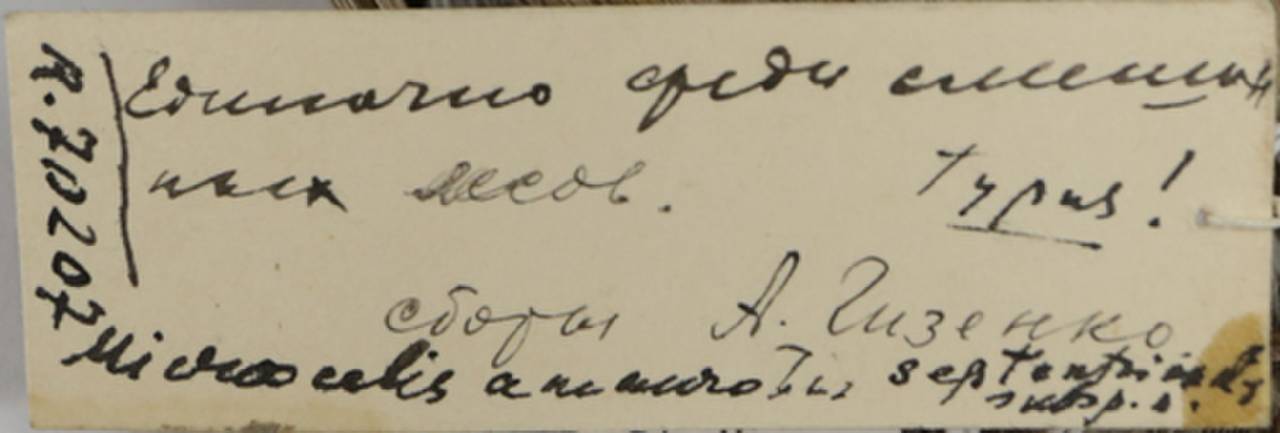 R. 70207
Единично среди смешан
ных лесов. Typus!
сборы А. Гизенко
Microscelis amaurotis septentrionalis
subsp. n.